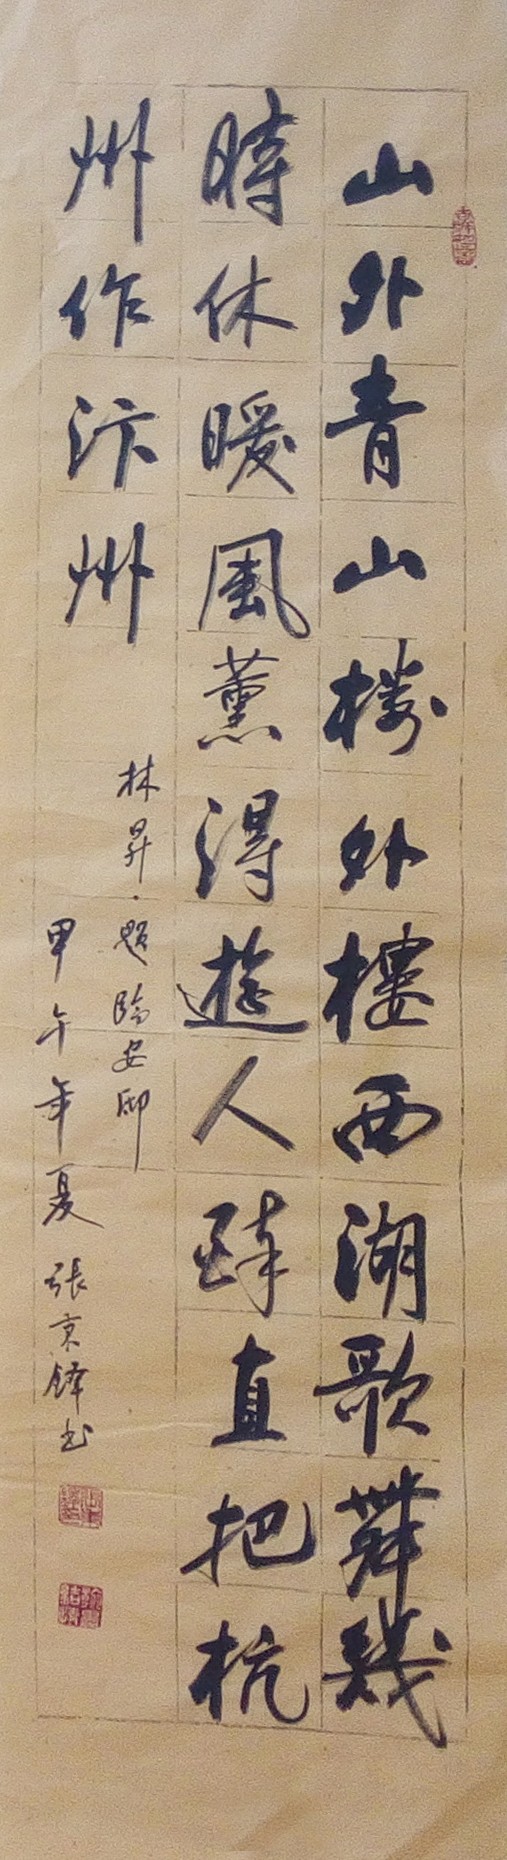 山外青山樓外樓西湖歌舞幾
時休暖風薰得遊人醉直把杭
州作汴州
林昇·题臨安邸
甲午年夏 張京书